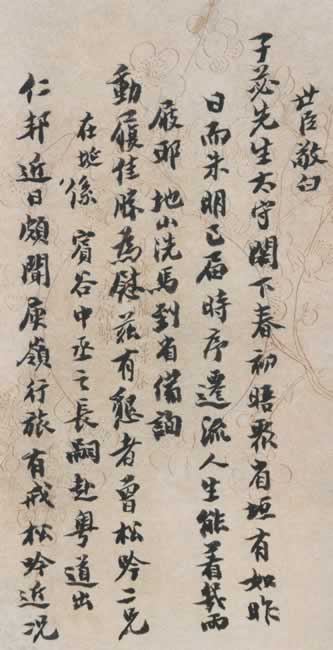 世臣敬白
子苾先生太守閣下春初晤聚省垣有如昨
日而朱明已届時序遷流人生能着幾兩
屐耶 地山洗馬到省備詢
動履佳勝為慰茲有懇者曾松吟二兄
在埏係 賓谷中丞之長嗣赴粤道出
仁邦近日頗聞庾嶺行旅有戒松吟近况